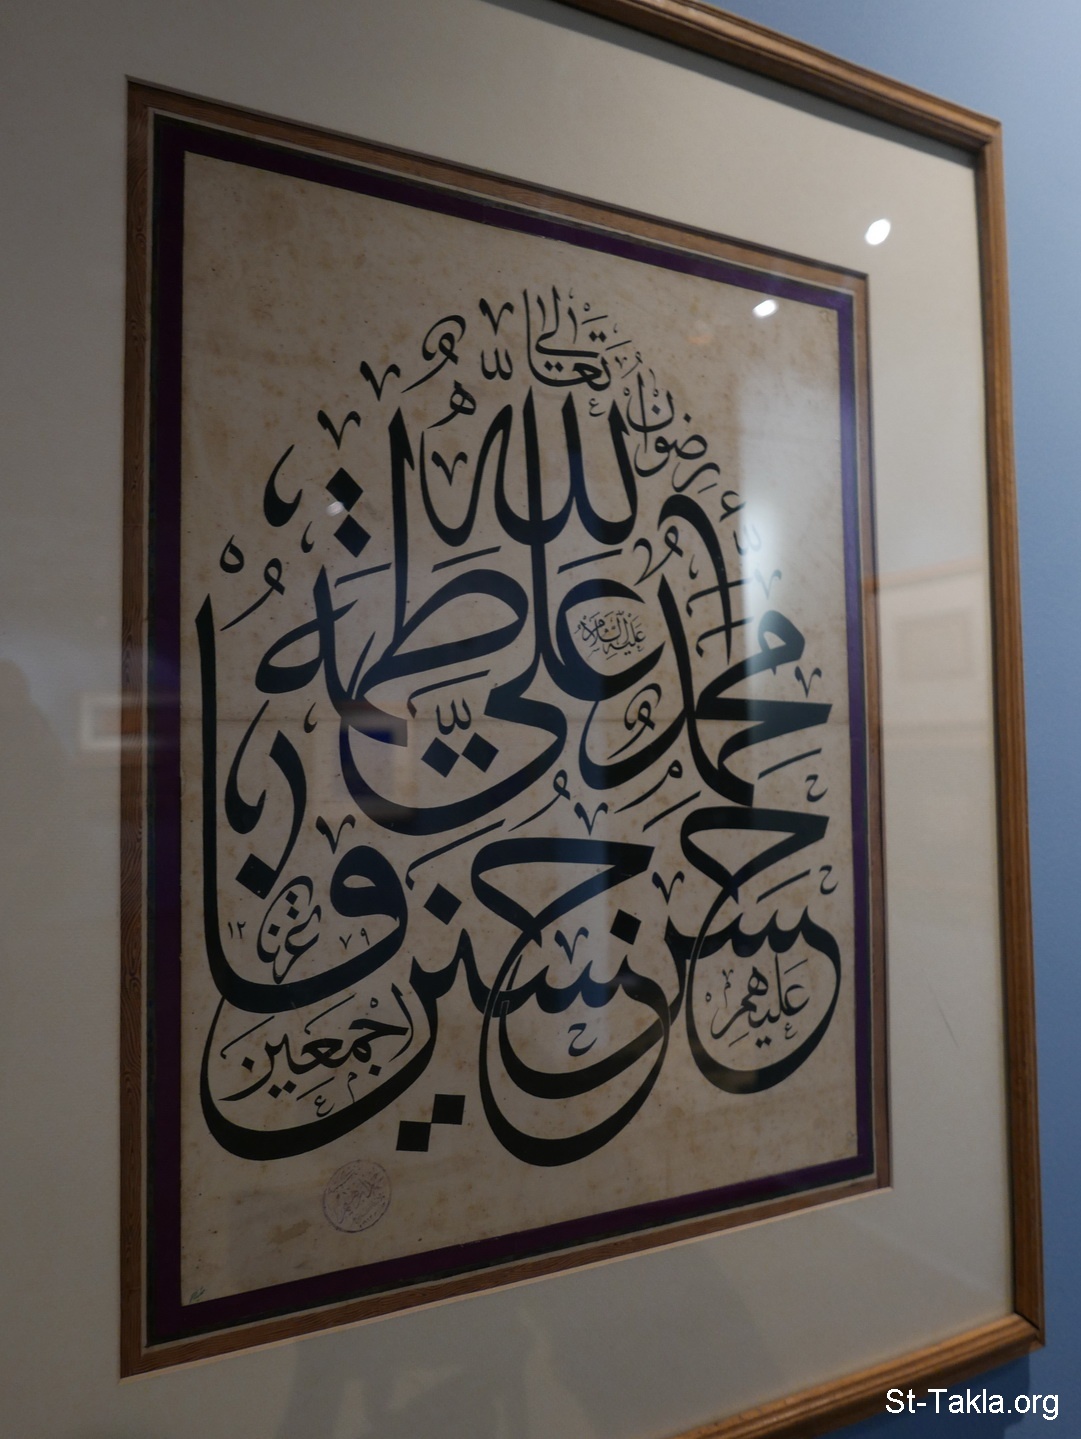 الله
محمد عليه السلام
علي
فاطمة
حسن حسين
رضوان الله تعالى عليهم أجمعين
١٢٧٩
St-Takla.org